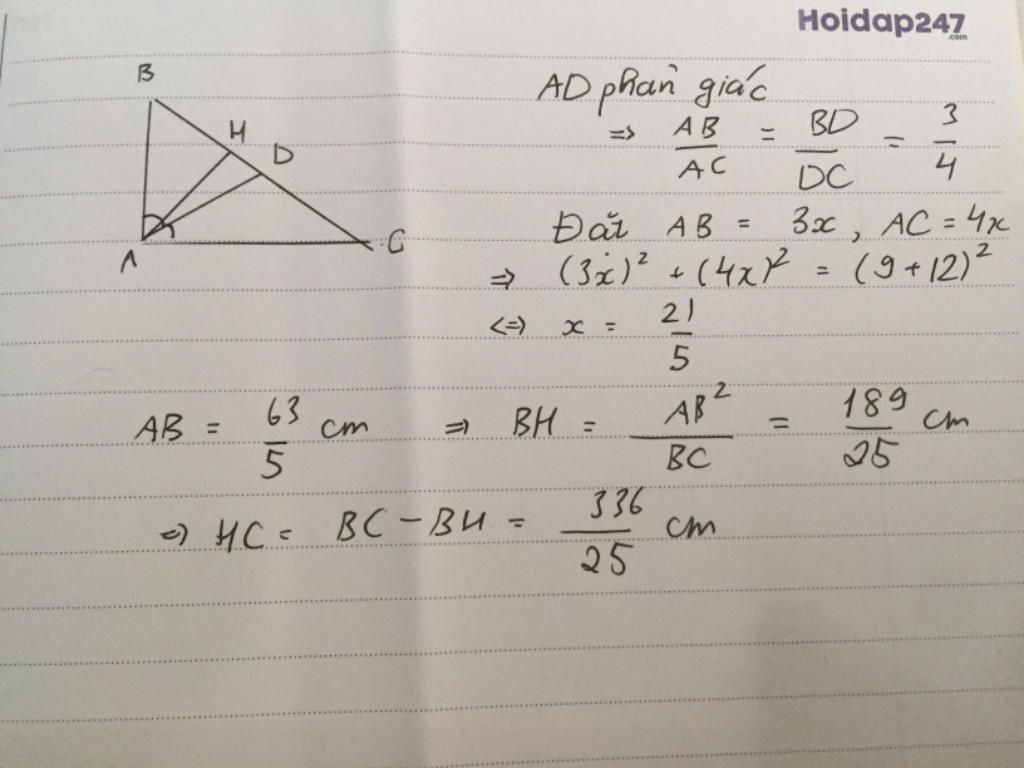 Hoidap247
.com
B
H
D
A
C
AD phân giác
=> AB/AC = BD/DC = 3/4
Đặt AB = 3x, AC = 4x
=> (3x)² + (4x)² = (9 + 12)²
<=> x = 21/5
AB = 63/5 cm => BH = AB²/BC = 189/25 cm
=> HC = BC - BH = 336/25 cm